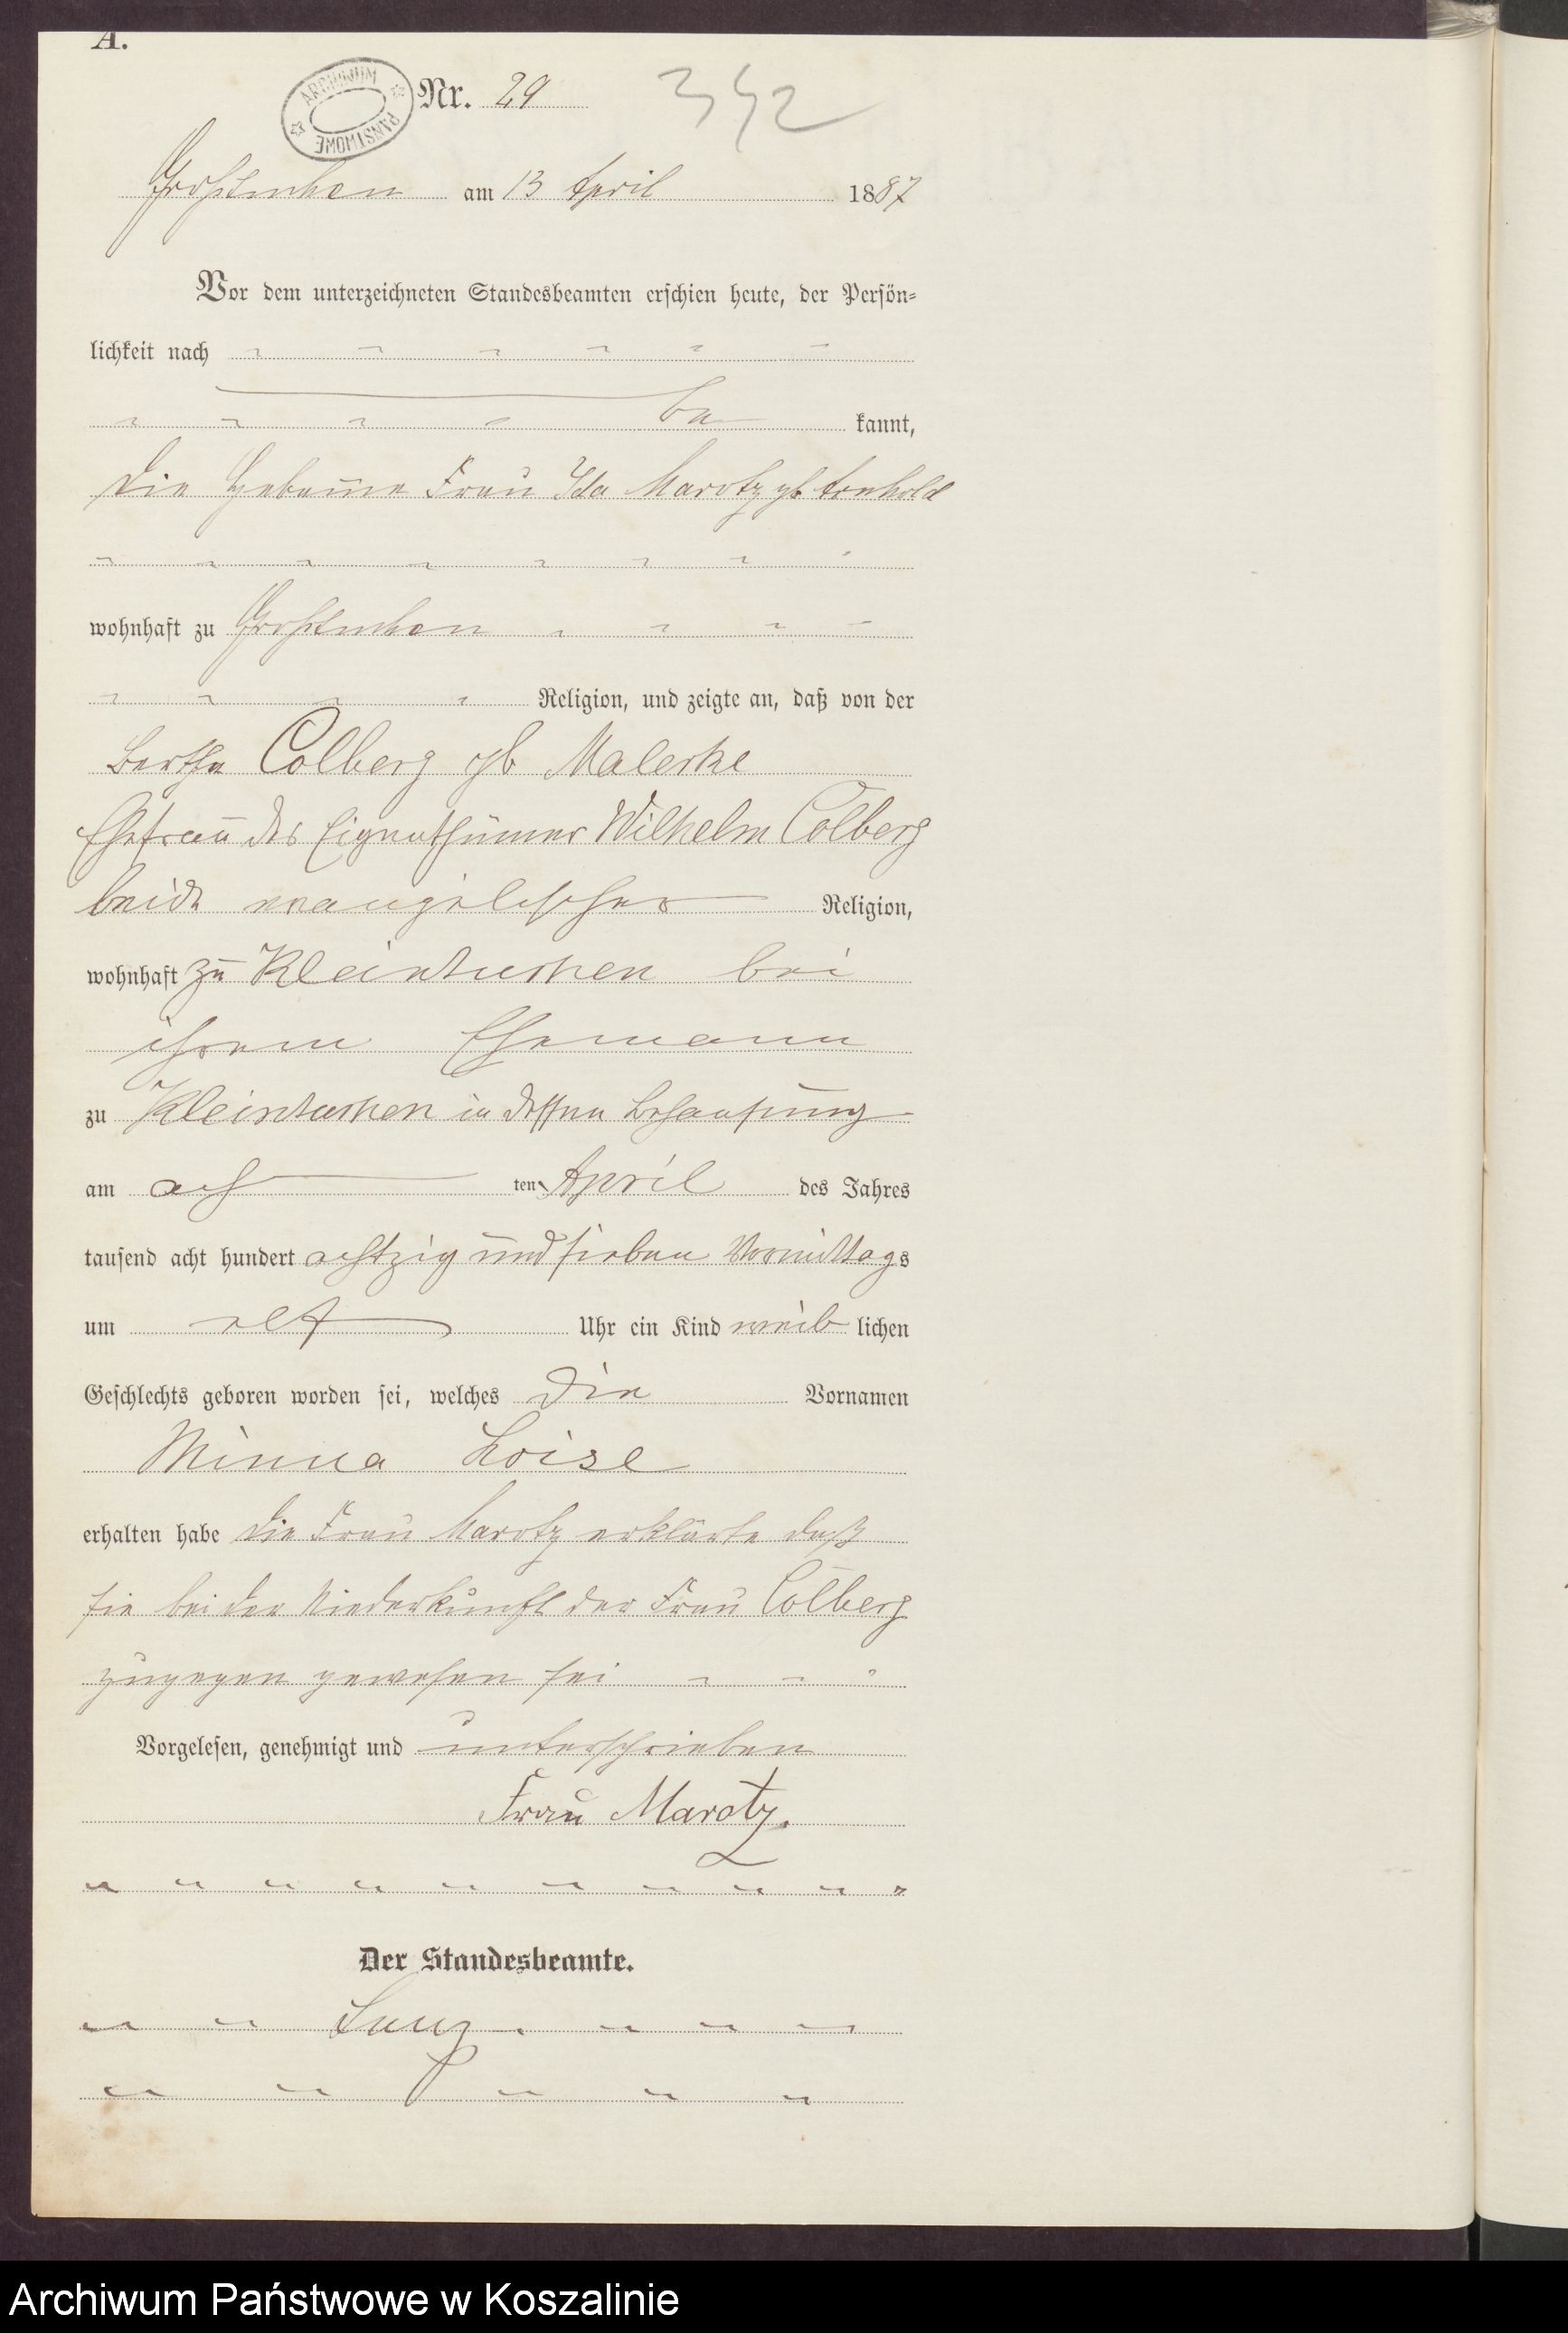 A.
ARCHIWUM PAŃSTWOWE
Nr. 29 342
Großtuchen am 13 April 1887
Vor dem unterzeichneten Standesbeamten erschien heute, der Persön-
lichkeit nach
be kannt,
die Hebamme Frau Ida Marotz gb Arnhold
wohnhaft zu Großtuchen
Religion, und zeigte an, daß von der
Bertha Colberg gb Maleske
Ehefrau des Eigenthümer Wilhelm Colberg
beide evangelischer Religion,
wohnhaft zu Kleintuchen bei
ihrem Ehemann
zu Kleintuchen in dessen Behausung
am ach ten April des Jahres
tausend acht hundert achtzig und sieben Vormittags
um elf Uhr ein Kind weib lichen
Geschlechts geboren worden sei, welches die Vornamen
Minna Loise
erhalten habe die Frau Marotz erklärte daß
sie bei der Niederkunft der Frau Colberg
zugegen gewesen sei
Vorgelesen, genehmigt und unterschrieben
Frau Marotz.
Der Standesbeamte.
Archiwum Państwowe w Koszalinie